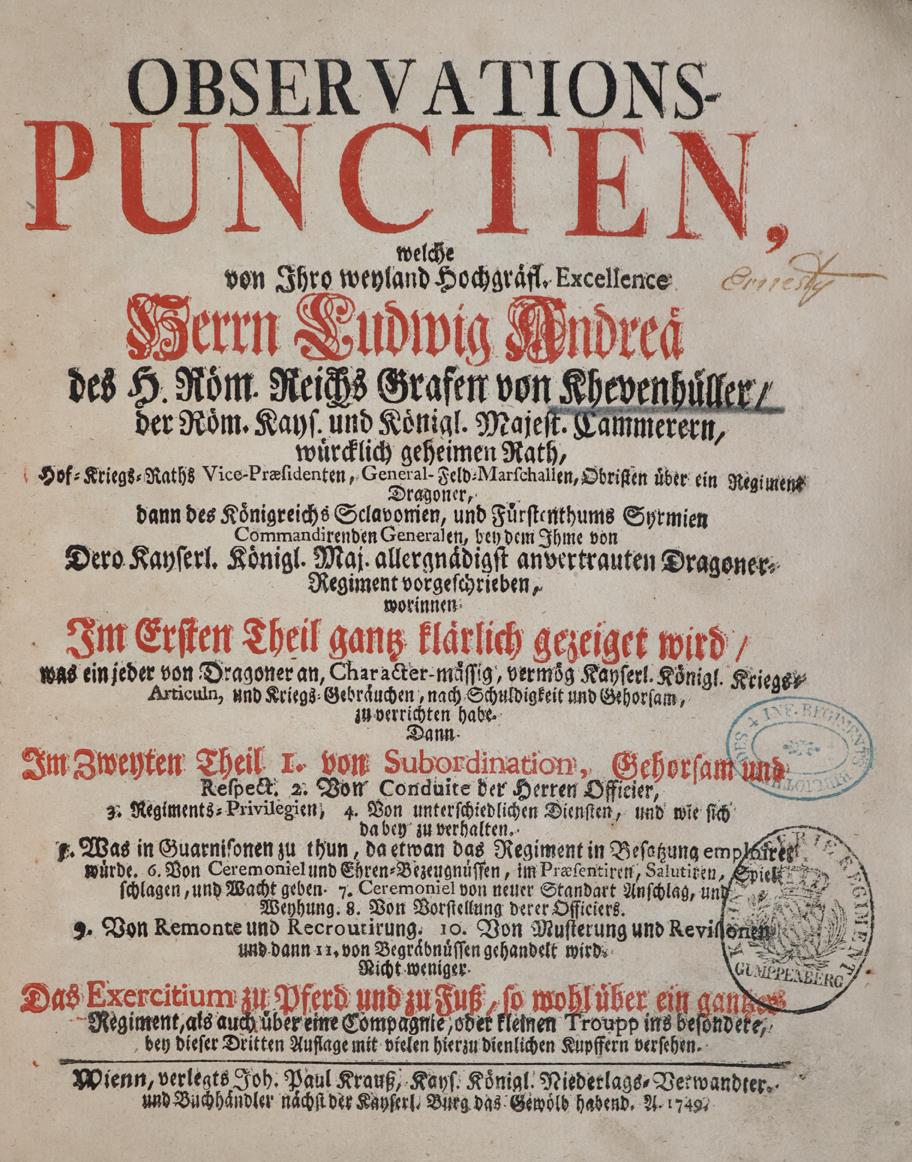 OBSERVATIONS-
PUNCTEN,
welche
von Ihro weyland Hochgräfl. Excellence
Ernesty
Herrn Ludwig Andreä
des H. Röm. Reichs Grafen von Khevenhüller/
der Röm. Kays. und Königl. Majest. Cammerern,
würcklich geheimen Rath,
Hof-Kriegs-Raths Vice-Præsidenten, General-Feld-Marschallen, Obristen über ein Regiment
Dragoner,
dann des Königreichs Sclavonien, und Fürstenthums Syrmien
Commandirenden Generalen, bey dem Ihme von
Dero Kayserl. Königl. Maj. allergnädigst anvertrauten Dragoner-
Regiment vorgeschrieben,
worinnen
Im Ersten Theil gantz klärlich gezeiget wird/
was ein jeder von Dragoner an, Character-mässig, vermög Kayserl. Königl. Kriegs-
Articuln, und Kriegs-Gebräuchen, nach Schuldigkeit und Gehorsam,
zu verrichten habe.
Dann
Im Zweyten Theil 1. von Subordination, Gehorsam und
Respect. 2. Von Conduite der Herren Officier,
3. Regiments-Privilegien, 4. Von unterschiedlichen Diensten, und wie sich
dabey zu verhalten.
5. Was in Guarnisonen zu thun, da etwan das Regiment in Besatzung employret
würde. 6. Von Ceremoniel und Ehren-Bezeugnüssen, im Præsentiren, Salutiren, Spiel
schlagen, und Wacht geben. 7. Ceremoniel von neuer Standart Anschlag, und
Weyhung. 8. Von Vorstellung derer Officiers.
9. Von Remonte und Recroutirung. 10. Von Musterung und Revisionen
und dann 11. von Begräbnüssen gehandelt wird.
Nicht weniger
Das Exercitium zu Pferd und zu Fuß, so wohl über ein gantzes
Regiment, als auch über eine Compagnie, oder kleinen Troupp ins besondere,
bey dieser Dritten Auflage mit vielen hierzu dienlichen Kupffern versehen.
Wienn, verlegts Joh. Paul Krauß, Kays. Königl. Niederlags-Verwandter
und Buchhändler nächst der Kayserl. Burg das Gewölb habend. A. 1749.
DES 4 INF. REGIMENTS
BIBLIOTHEK
GUMPPENBERG